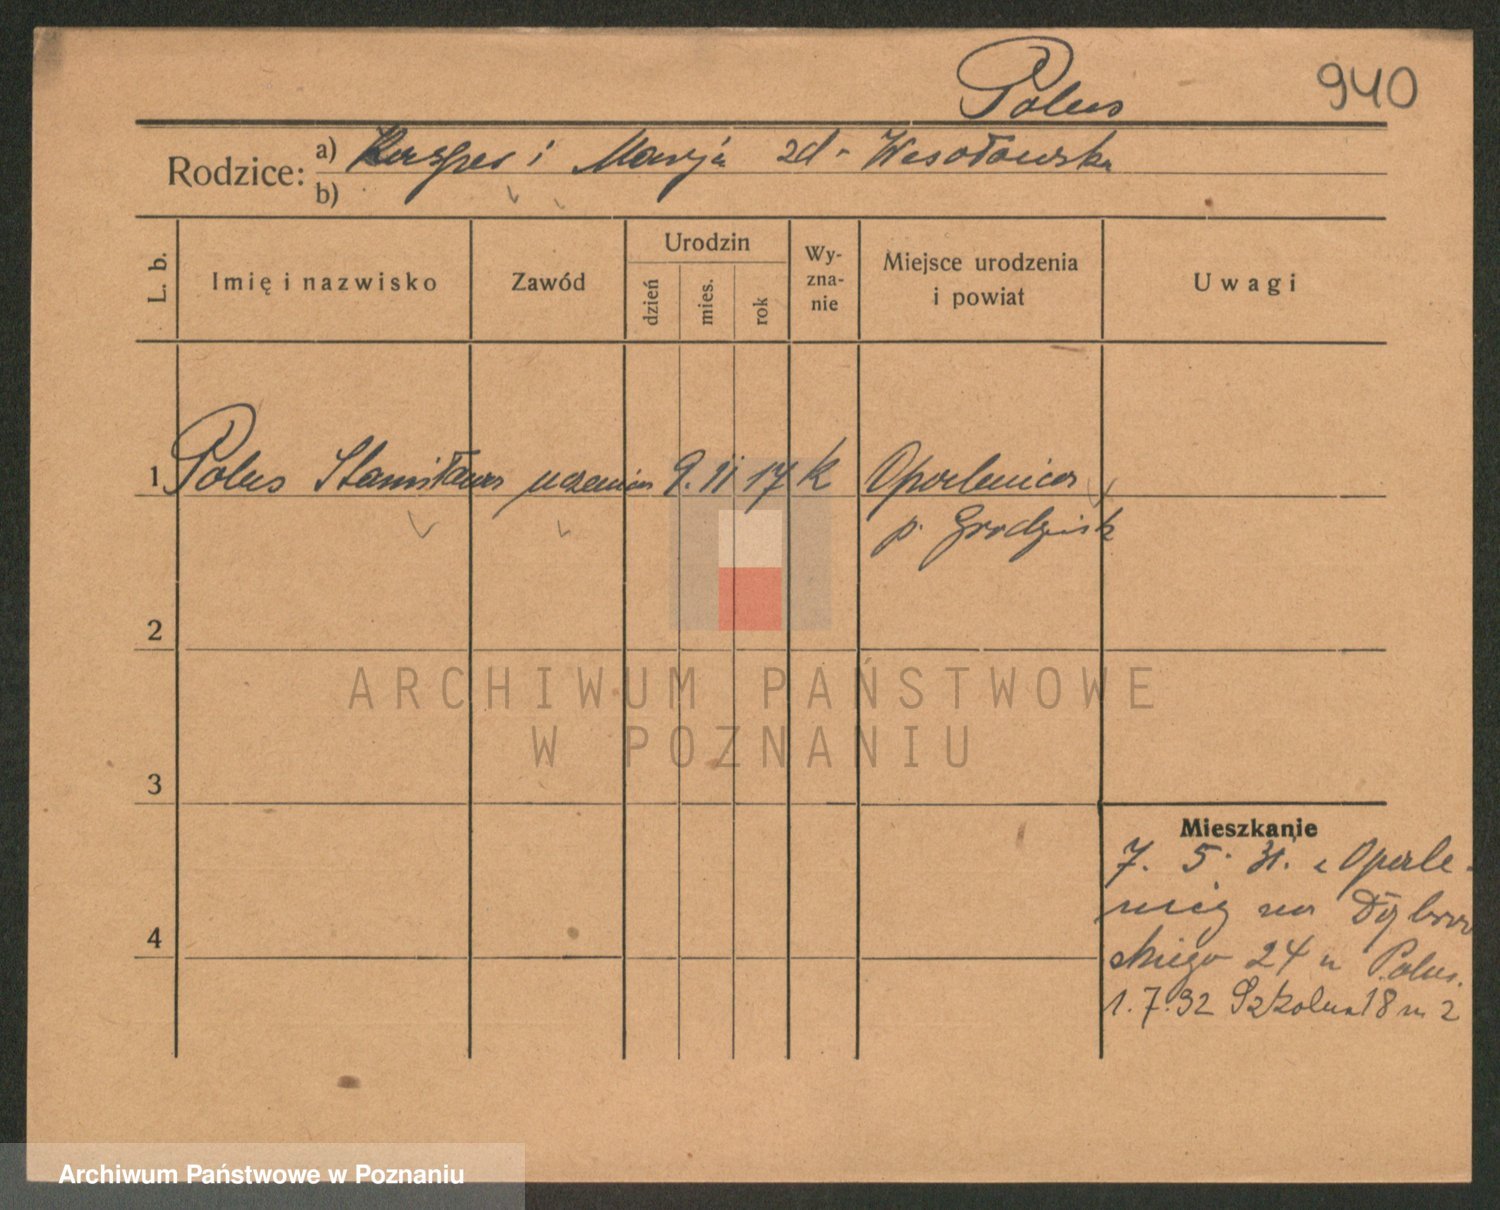 Polus
940
Rodzice: a) Kasper i Marja zd - Wesołowska
b)
L. b.
Imię i nazwisko
Zawód
Urodzin
dzień
mies.
rok
Wy-
zna-
nie
Miejsce urodzenia
i powiat
Uwagi
1 Polus Stanisław uczeń 9. 11 17 k Opalenica
p. Grodzisk
2
ARCHIWUM PAŃSTWOWE
W POZNANIU
3
Mieszkanie
7. 5. 31. z Opale-
nicy na Dąbrow
skiego 24 u Polus.
4
1. 7. 32 Szkolna 18 m 2
Archiwum Państwowe w Poznaniu